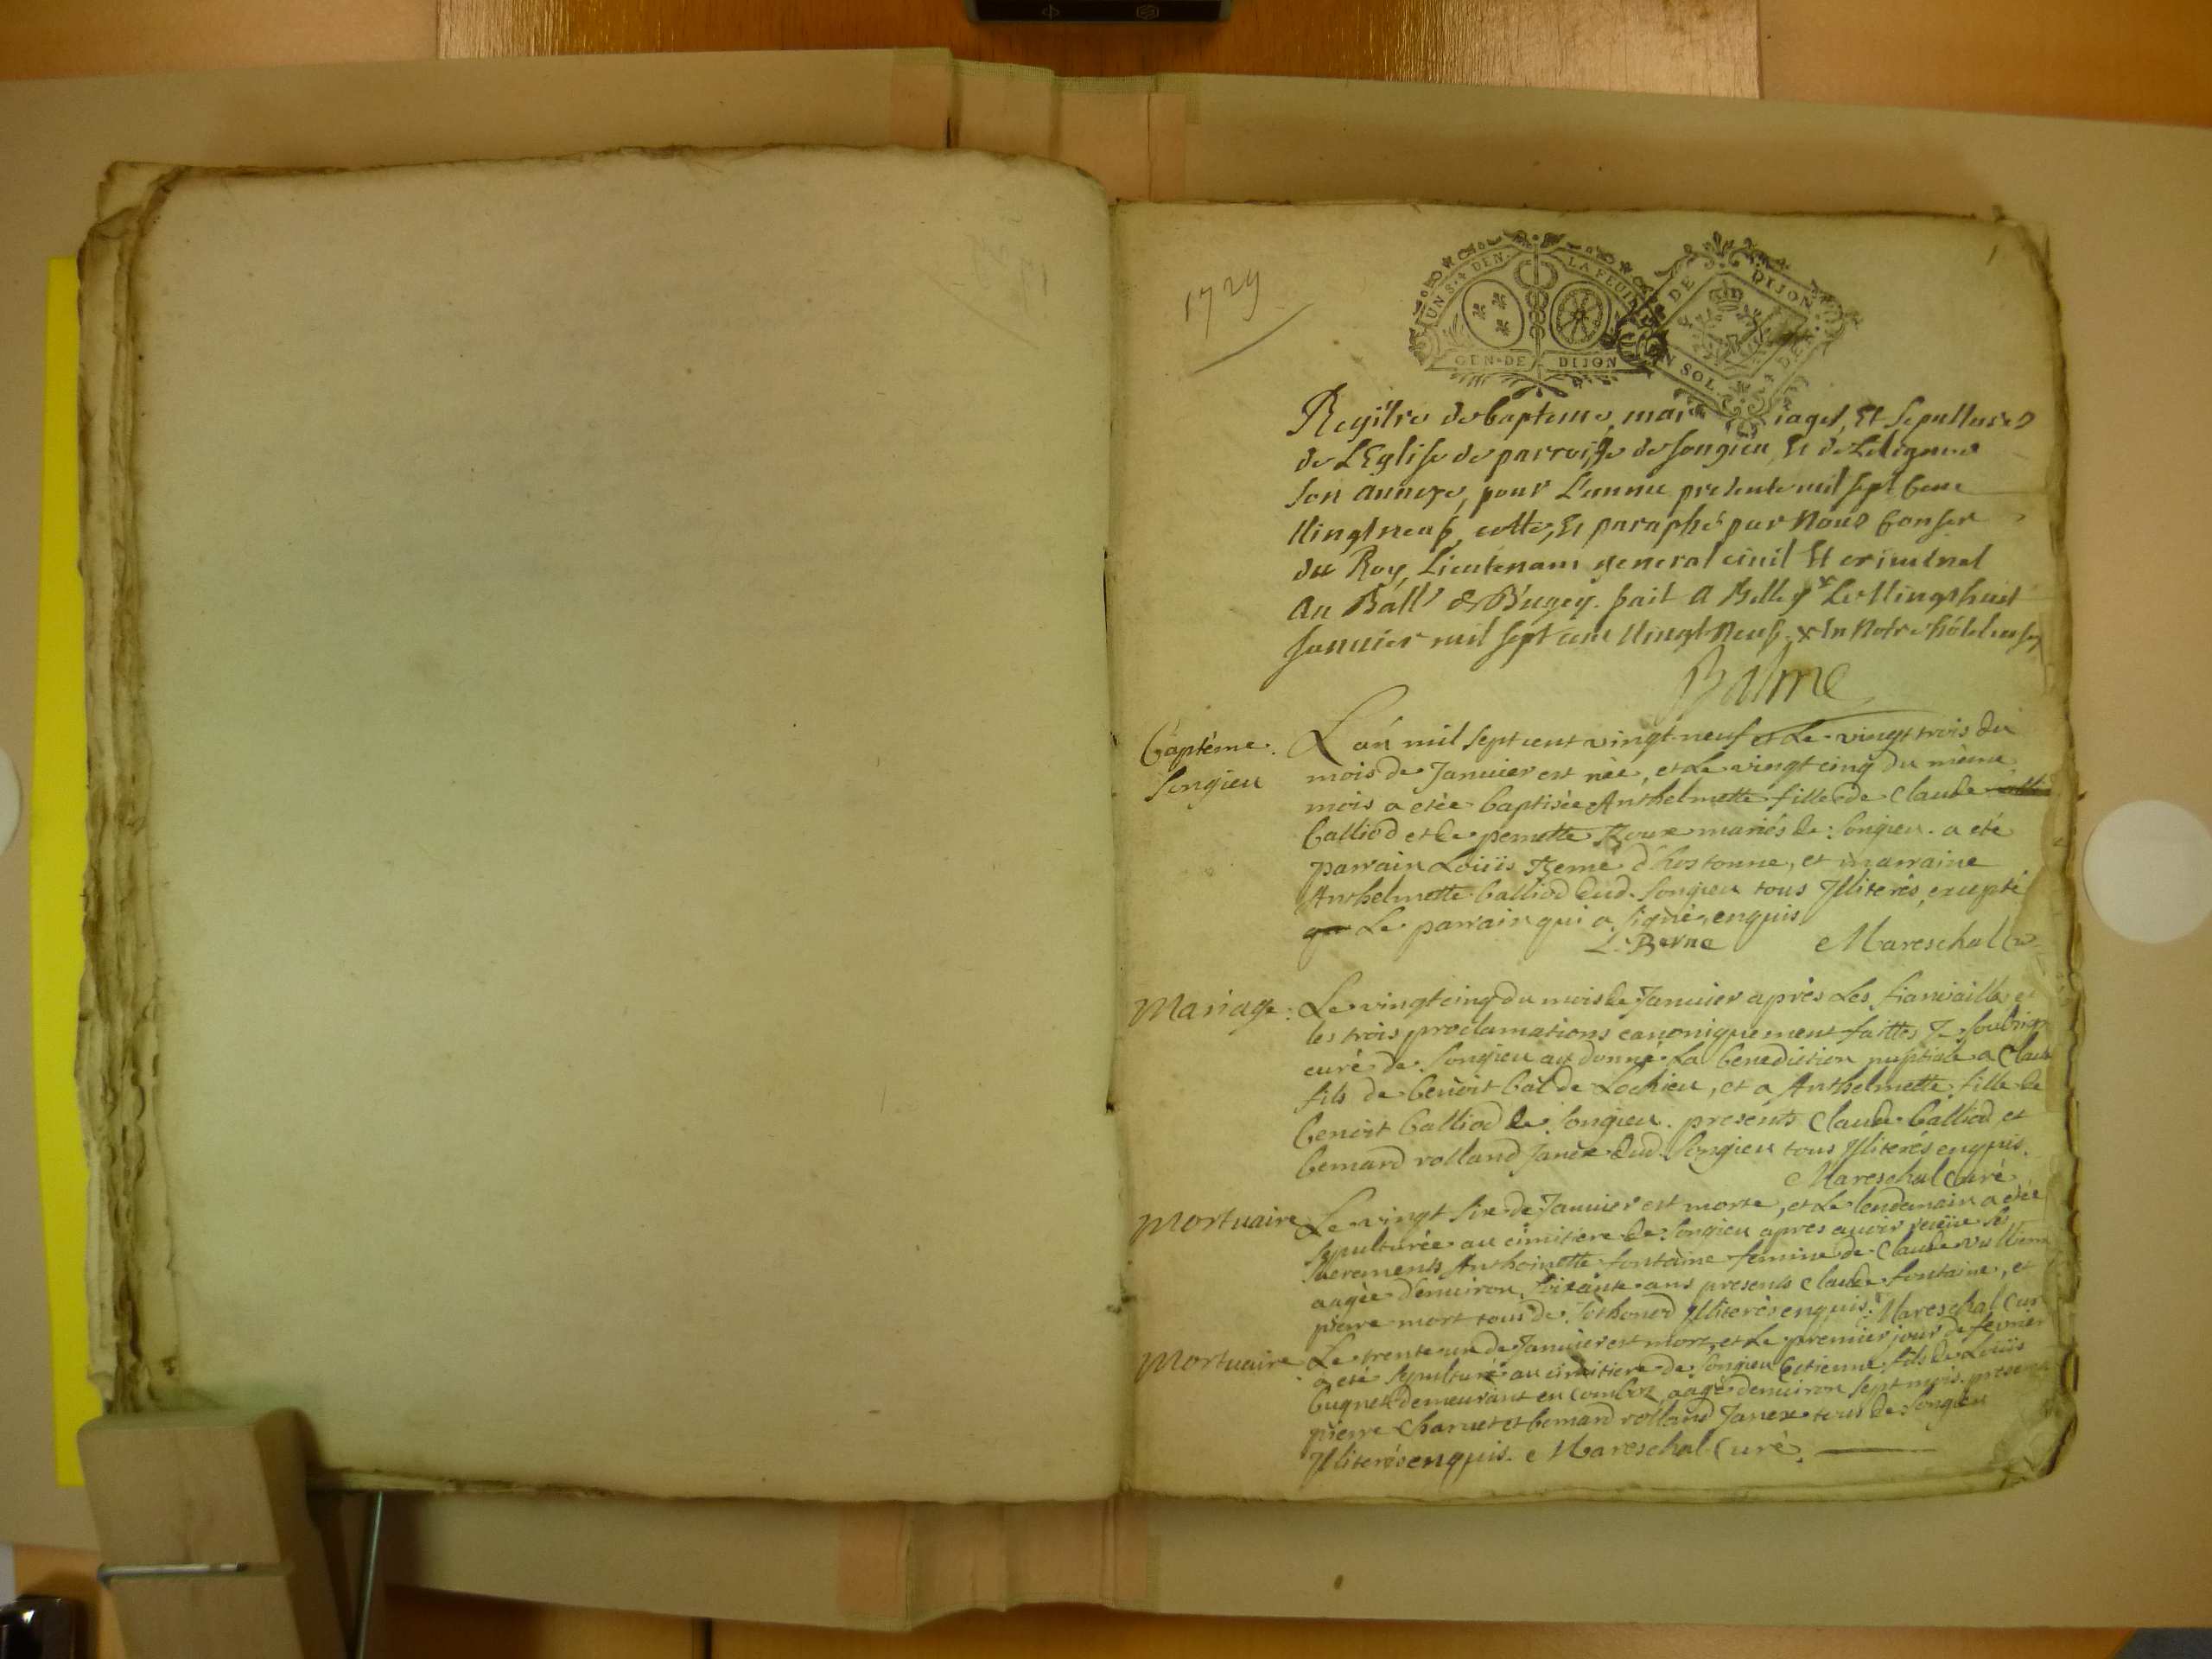 1729
1
UN S. 4 DEN. LA FEUILLE
GEN. DE DIJON
DE DIJON
UN SOL
DEN
Registre de bapteme, mariages, Et Sepultures
de L'Eglise de parroisse de Songieu, Et de
Son annexe, pour L'année presente mil sept Cent
Vingtneuf, cotté, Et paraphé par Nous Conser
du Roy, Lieutenant general civil Et criminel
Au Ball' de Bugey. fait A Belley x Le Vingthuit
Januier mil sept cent Vingt Neuf. x En Notre hôtel
Balme
Baptéme.
Songieu
L'an mil sept cent vingt-neuf et Le vingt trois du
mois de Januier est née, et Le vingt cinq du même
mois a etée baptisée Anthelmette fille de Claude
balliod et de pernette Roux mariés de Songieu. a eté
parrain Loüis Berne d'hostonne, et marraine
Anthelmette balliod dud. Songieu tous Illiterés, excepté
Le parrain qui a signé, enquis
L. Berne Mareschal Cu
Mariage: Le vingt cinq du mois de Januier apres Les fiancailles et
les trois proclamations canoniquement faittes Je soubsigné
curé de Songieu ay donné La benediction nuptiale a Claude
fils de benoit bal de Lochieu, et a Anthelmette fille de
benoit balliod de Songieu. presents Claude balliod et
bernard rolland Janex dud. Songieu tous Illiterés enquis.
Mareschal Curé
Mortuaire Le vingt six de Januier est morte, et Le lendemain a etée
sepulturée au cimitiere de Songieu apres auoir receüe les
sacrements Anthoinette fontaine femme de Claude
aagée d'enuiron soixante ans presents Claude fontaine, et
pierre mort tous de Sothonod Illiterés enquis. Mareschal Cur
Mortuaire. Le trente un de Januier est mort, et Le premier jour de feurier
a eté sepulturé au cimitiere de Songieu Estienne fils de Loüis
bugnet demeurant en Comboz, aagé denuiron sept mois. presents
pierre Charuet et bernard rolland Janex tous de Songieu
Illiterés enquis. Mareschal Curé.